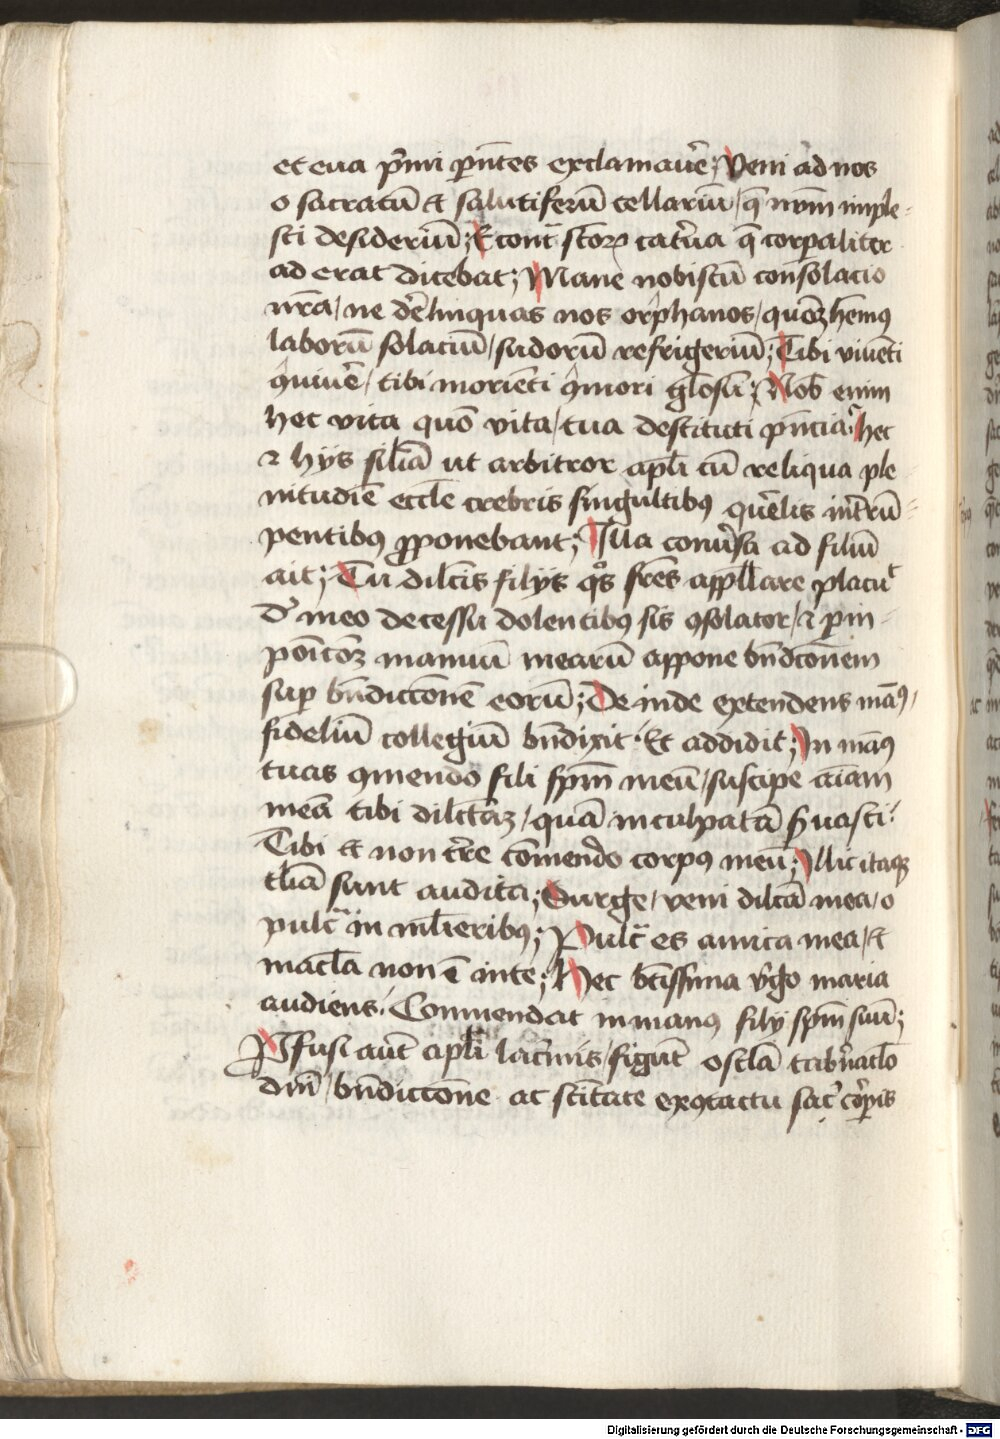 et eua p̄mi pn̄tes exclamauēr; Veni ad nos
o sacratū & salutiferū cellariū / q̄ nr̄m imple-
sti desideriū; Econt̄ sctoꝝ cat̾ua q̄ corpaliter
ad erat dicebat; Mane nobiscū consolacio
nr̄a / ne dēlinquas nos orphanos / quōꝫ hēmꝰ
laborū solaciū / sudorū refrigeriū; Tibi viuēti
ꝯuiuēr / tibi moriēti ꝯmori glōsū; Nob̄ enim
hec vita quō vita / tua destituti pn̄cia; hec
⁊ hijs sil̄ia ut arbitror apl̄i cū reliqua ple
nitudiē eccl̄e crebris singultibꝰ querēlis int̄rū-
pentibꝰ ꝓponebant; Illa conuersa ad filiū
ait; Tu dilc̄is filijs qͦs fr̄es appellare placuᵗ
D̾ meo decessu dolentibꝰ sis ꝯsolator / ⁊ p̱ in-
poīcōꝫ manuū mearū appone bn̄dcōnem
suꝑ bn̄diccōnē eorū; De inde extendens māꝰ /
fideliū collegiū bn̄dixit. Et addidit; In māꝰ
tuas ꝯmendo fili spm̄ meū / suscipe aīam
meā tibi dilctāꝫ / quā inculpatā s̾uasti.
Tibi & non t̾re cōmendo corpꝰ meū; Illic itaqꝫ
tl̄ia sunt audita; Surge / veni dilcā mea / o
pulc̄ in ml̄ieribꝰ; Pulc̄ es amica mea / &
macl̄a non ē in te; Hec btīssima v̾go maria
audiens. Commendat in manꝰ filij spm̄ suū;
Pfusi aūt apl̄i lac̾mis / figūt oscl̄a tab̾nacl̄o
dn̄i / bn̄diccōne ac sc̄itate ex ꝯtactu sac̾ corp̱is
Digitalisierung gefördert durch die Deutsche Forschungsgemeinschaft - DFG